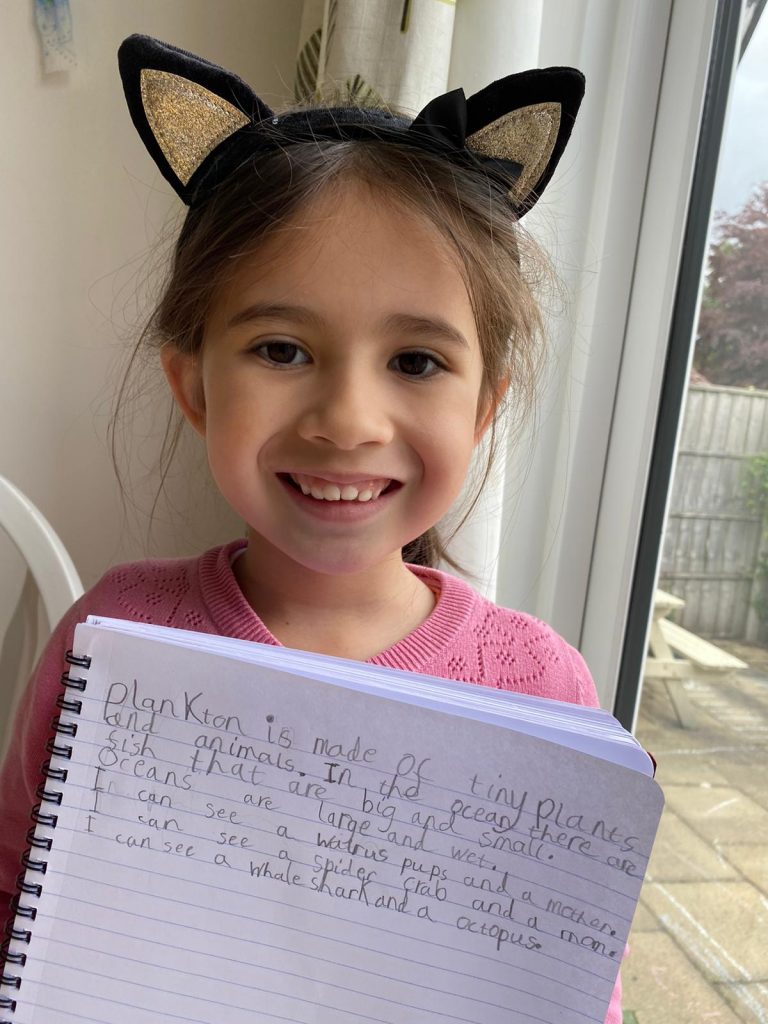 plankton is made of tiny plants
and animals. In the ocean there are
fish that are big and small.
Oceans are large and wet.
I can see a walrus pups and a mother.
I can see a spider crab and a man.
I can see a whale shark and a octopus.